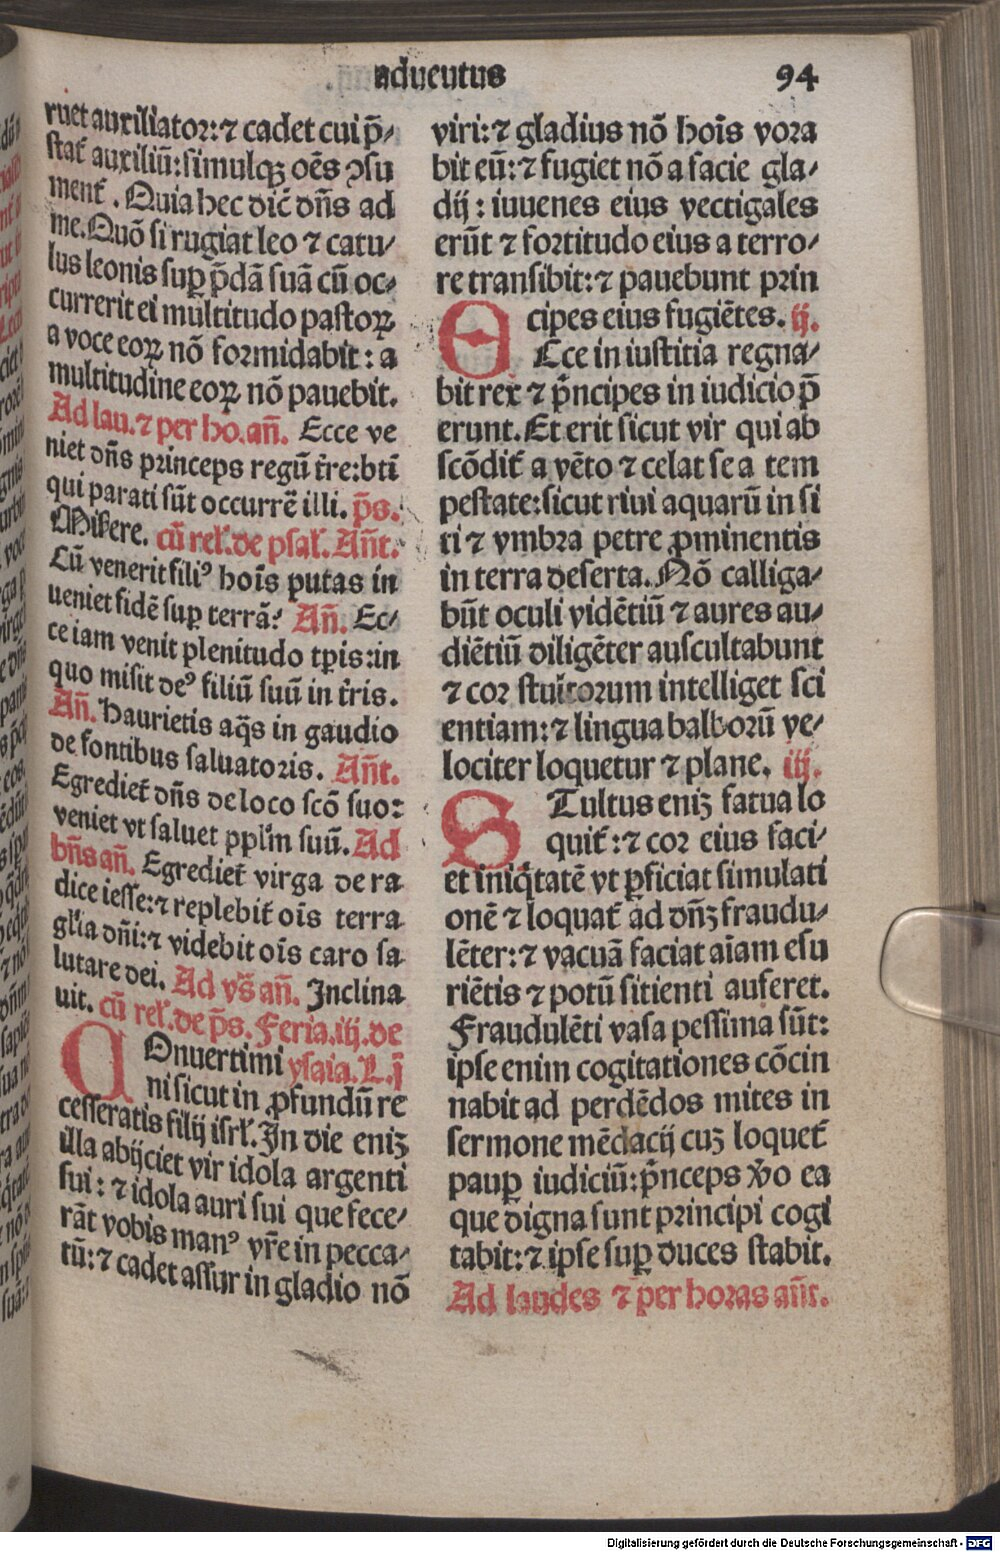 aduentus
94
ruet auxiliator: ⁊ cadet cui p̄⸗
stat᷑ auxiliū: simulqꝫ oēs ꝯsu
ment᷑. Quia hec dic̄ dn̄s ad
me. Quō si rugiat leo ⁊ catu⸗
lus leonis suꝑ p̄dā suā cū oc⸗
currerit ei multitudo pastoꝝ
a voce eoꝝ nō formidabit: a
multitudine eoꝝ nō pauebit.
Ad lau. ⁊ per ho. an̄. Ecce ve
niet dn̄s princeps regū tr̄e: bt̄i
qui parati sūt occurrē illi. p̄s.
Mis̄ere. cū rel᷑. de psal᷑. An̄t.
Cū venerit filiꝰ hoīs putas in
ueniet fidē suꝑ terrā? An̄. Ec⸗
ce iam venit plenitudo tp̄is: in
quo misit deꝰ filiū suū in tr̄is.
An̄. Haurietis aq̄s in gaudio
de fontibus saluatoris. An̄t.
Egrediet᷑ dn̄s de loco scō suo:
veniet vt saluet ppl᷑m suū. Ad
bn̄s an̄. Egrediet᷑ virga de ra
dice iesse: ⁊ replebit᷑ oīs terra
gl᷑ia dn̄i: ⁊ videbit oīs caro sa
lutare dei. Ad vs̄ an̄. Inclina
uit. cū rel᷑. de p̄s. Feria. iij. de
COnuertimi ysaia. L. j
ni sicut in ꝓfundū re
cesseratis filij isrl᷑. In die eniꝫ
illa abijciet vir idola argenti
sui: ⁊ idola auri sui que fece⸗
rāt vobis manꝰ vr̄e in pecca⸗
tū: ⁊ cadet assur in gladio nō
viri: ⁊ gladius nō hoīs vora
bit eū: ⁊ fugiet nō a facie gla⸗
dij: iuuenes eius vectigales
erūt ⁊ fortitudo eius a terro⸗
re transibit: ⁊ pauebunt prin
cipes eius fugiētes. ij.
ECce in iustitia regna⸗
bit rex ⁊ p̄ncipes in iudicio p̄
erunt. Et erit sicut vir qui ab
scōdit᷑ a vēto ⁊ celat se a tem
pestate: sicut riui aquarū in si
ti ⁊ vmbra petre ꝓminentis
in terra deserta. Nō calliga⸗
būt oculi vidētiū ⁊ aures au⸗
diētiū diligēter auscultabunt
⁊ cor stultorum intelliget sci
entiam: ⁊ lingua balborū ve⸗
lociter loquetur ⁊ plane. iij.
STultus eniꝫ fatua lo
quit᷑: ⁊ cor eius faci⸗
et iniq̄tatē vt ꝑficiat simulati
onē ⁊ loquat᷑ ad dn̄ꝫ fraudu⸗
lēter: ⁊ vacuā faciat aīam esu
riētis ⁊ potū sitienti auferet.
Fraudulēti vasa pessima sūt:
ipse enim cogitationes cōcin
nabit ad perdēdos mites in
sermone mēdacij cuꝫ loquet᷑
pauꝑ iudiciū: p̄nceps v̄o ea
que digna sunt principi cogi
tabit: ⁊ ipse suꝑ duces stabit.
Ad laudes ⁊ per horas an̄t.
Digitalisierung gefördert durch die Deutsche Forschungsgemeinschaft - DFG